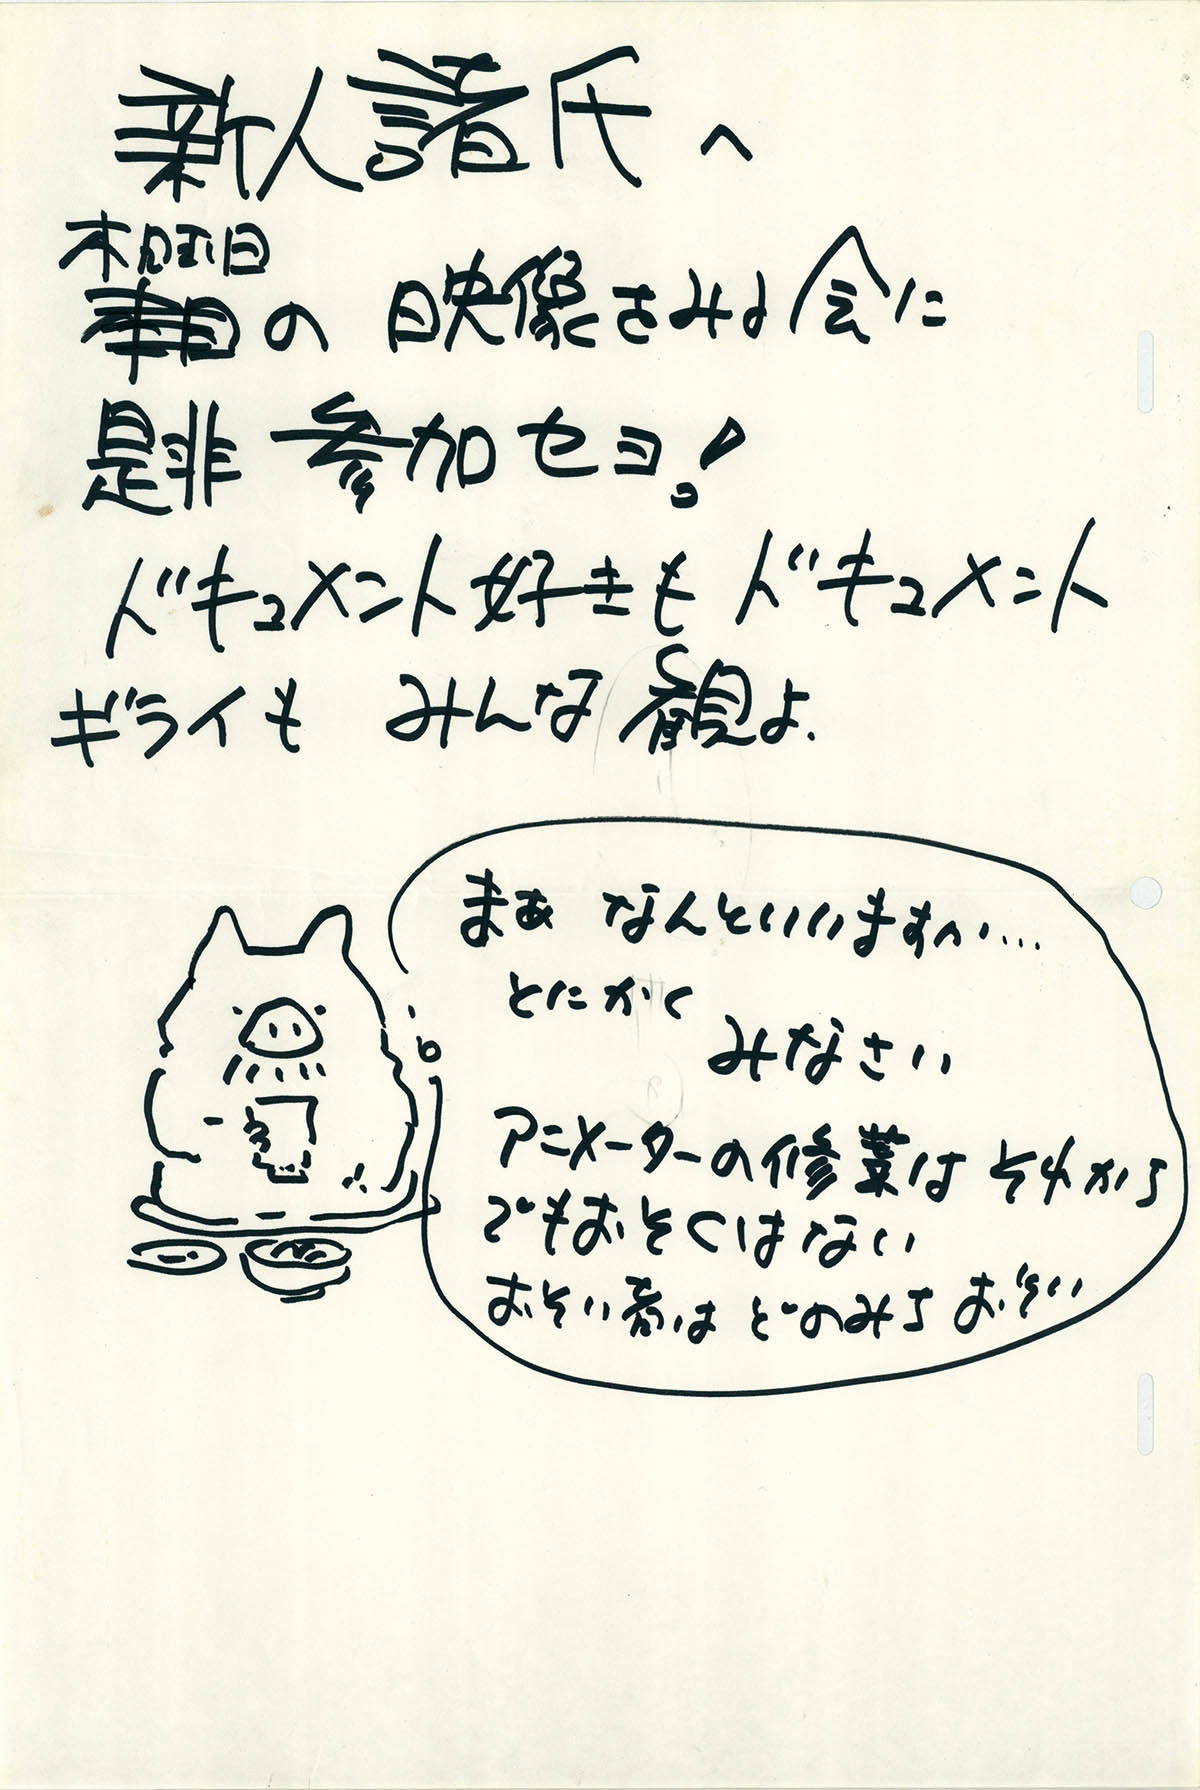 新人諸氏へ
木曜日
の 映像をみる会に
是非 参加セヨ!
ドキュメント好きも ドキュメント
ギライも みんな観よ.
まあ なんといいますか…
とにかく
みなさい
アニメーターの修業は それから
でもおそくはない
おそい者は どのみち おそい